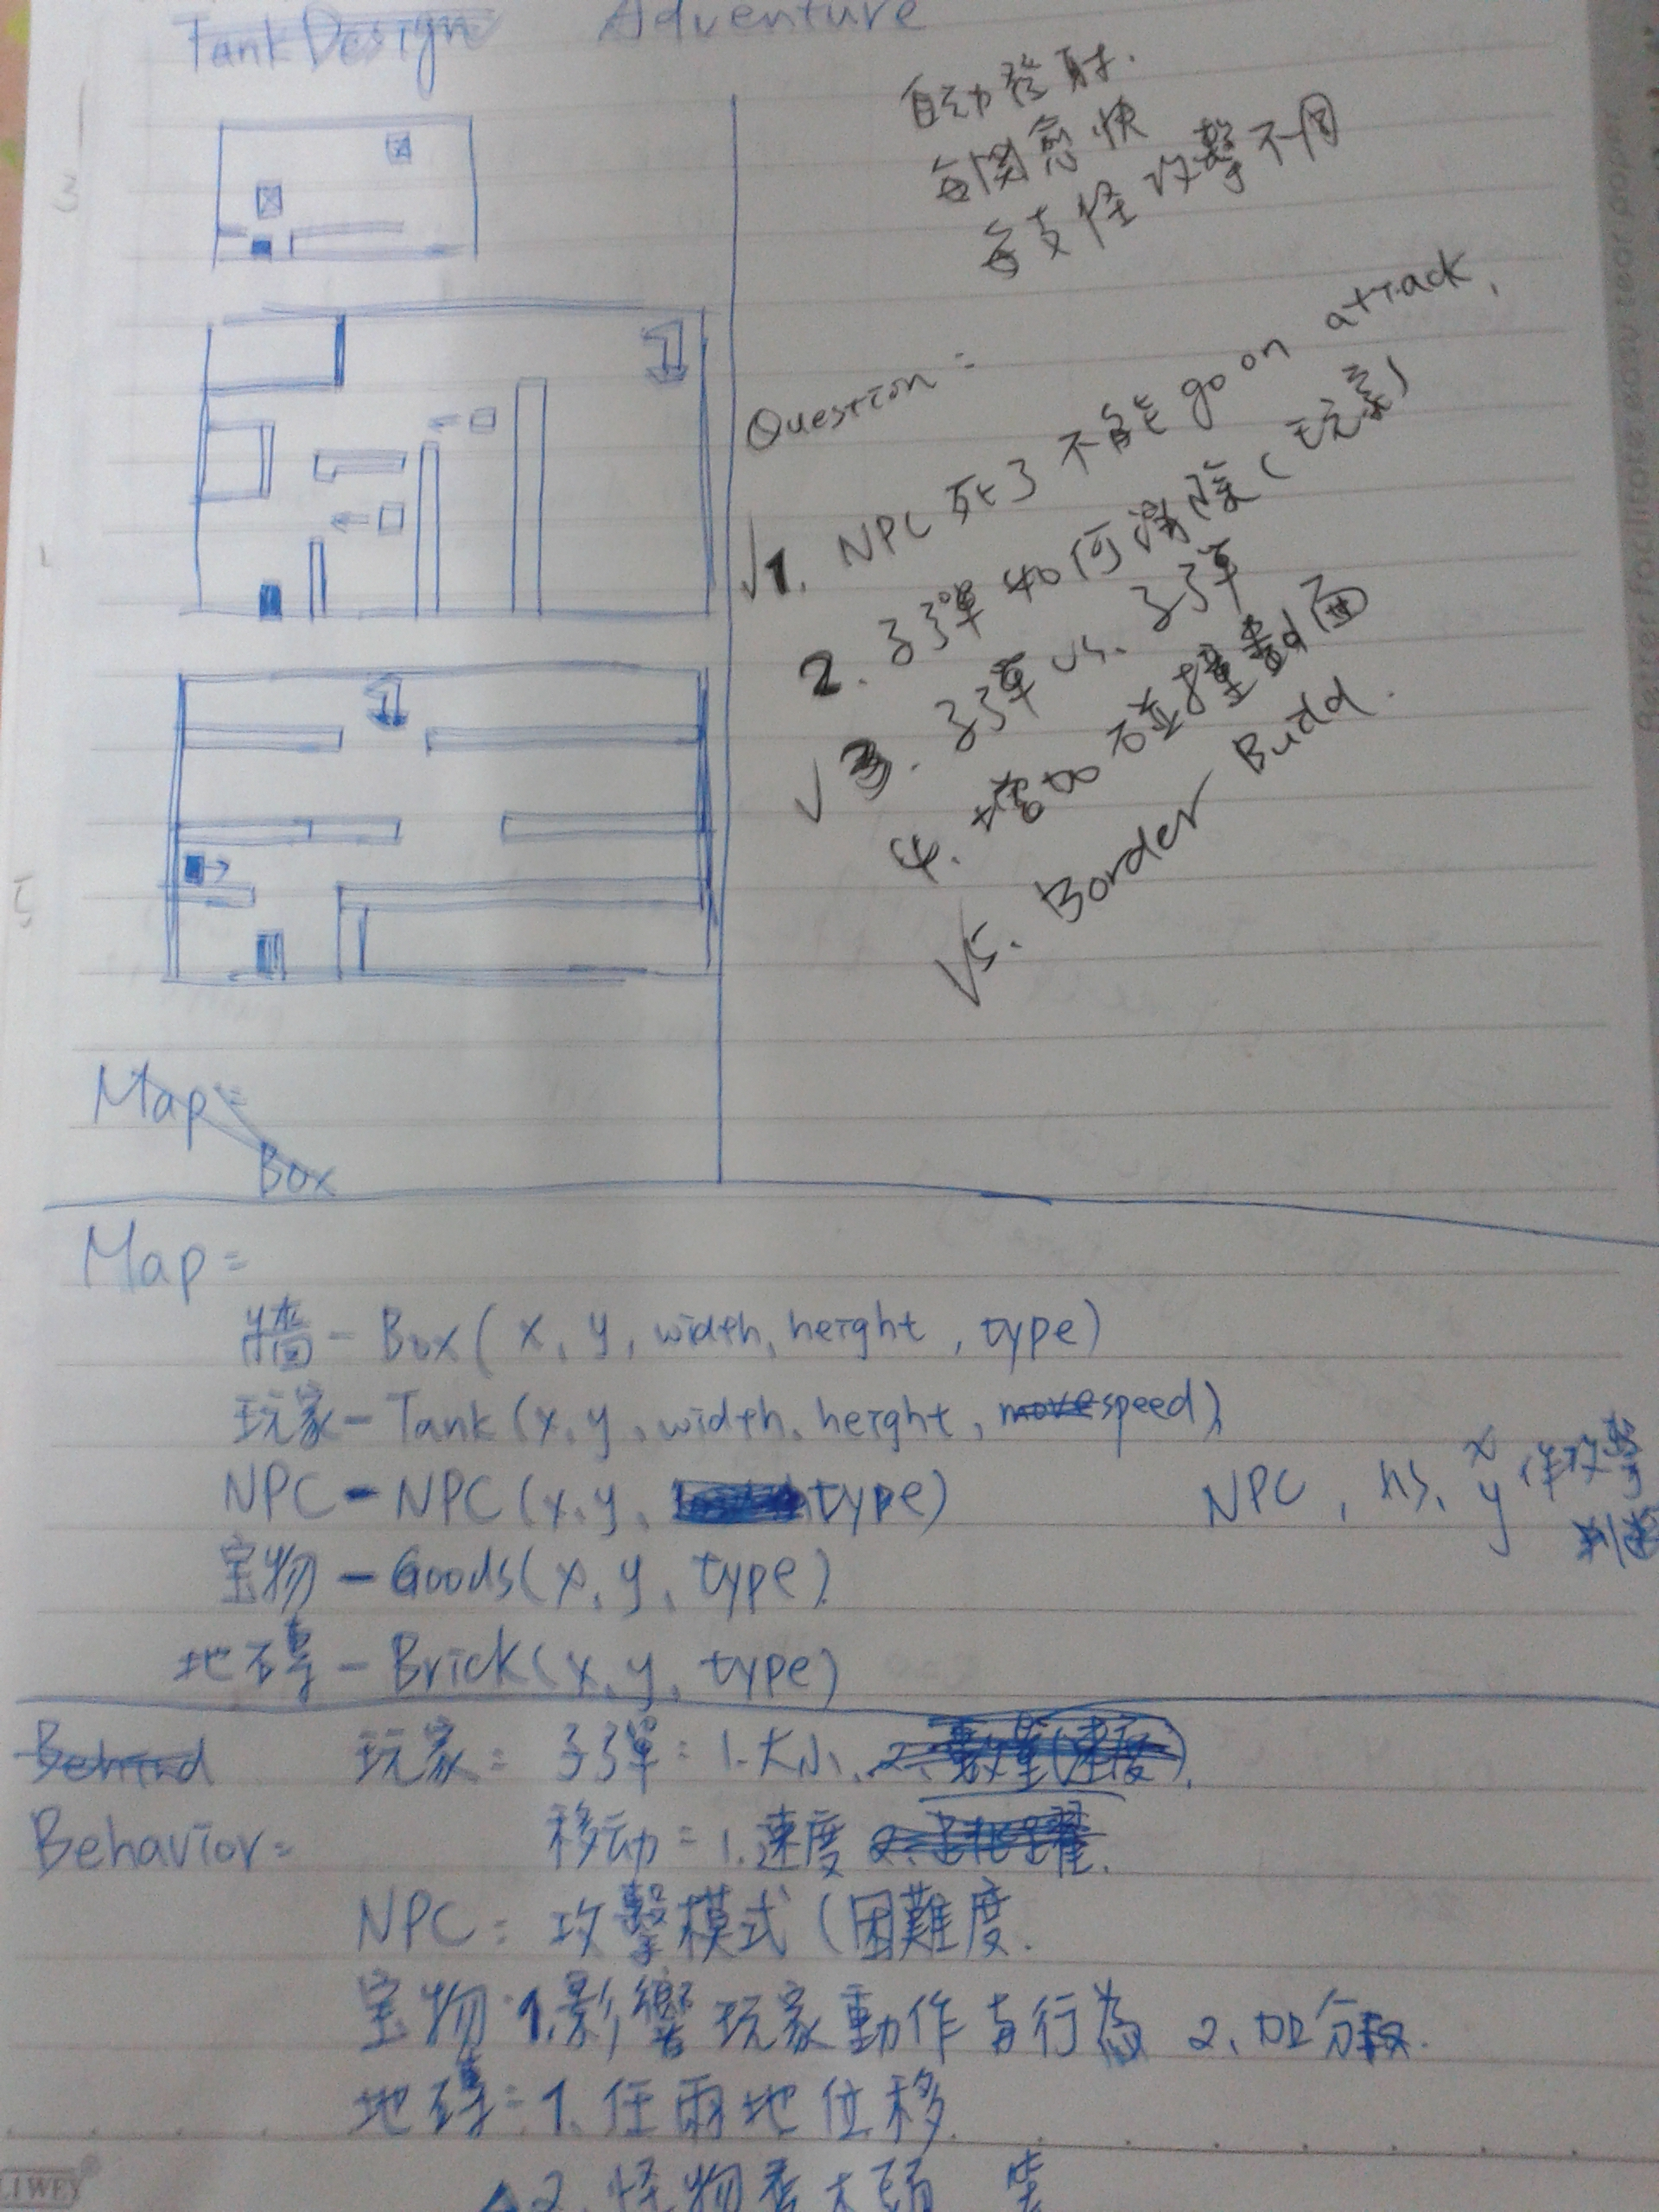 Tank Design Adventure
自动發射.
每関愈快
每支怪攻擊不同
Question:
√1. NPC 死了不能 go on attrack.
2. 子彈如何消除(玩家)
√3. 子彈 vs. 子彈
4. 增加碰撞畫面
√5. Border Buidd.
Map:
Box
Map:
牆 - Box( x, y, width, height, type)
玩家 - Tank (x, y, width, height, move speed)
NPC - NPC (x, y, type)
NPC, x y 作攻擊
宝物 - Goods(x, y, type)
地磚 - Brick(x, y, type)
Behind 玩家: 子彈: 1. 大小、2. 數量(速度).
Behavior: 移动: 1. 速度 2. 跳躍.
NPC: 攻擊模式 (困難度.
宝物: 1. 影響玩家動作与行為 2. 加分数.
地磚: 1. 任兩地位移.
2. 怪物
LIWEY